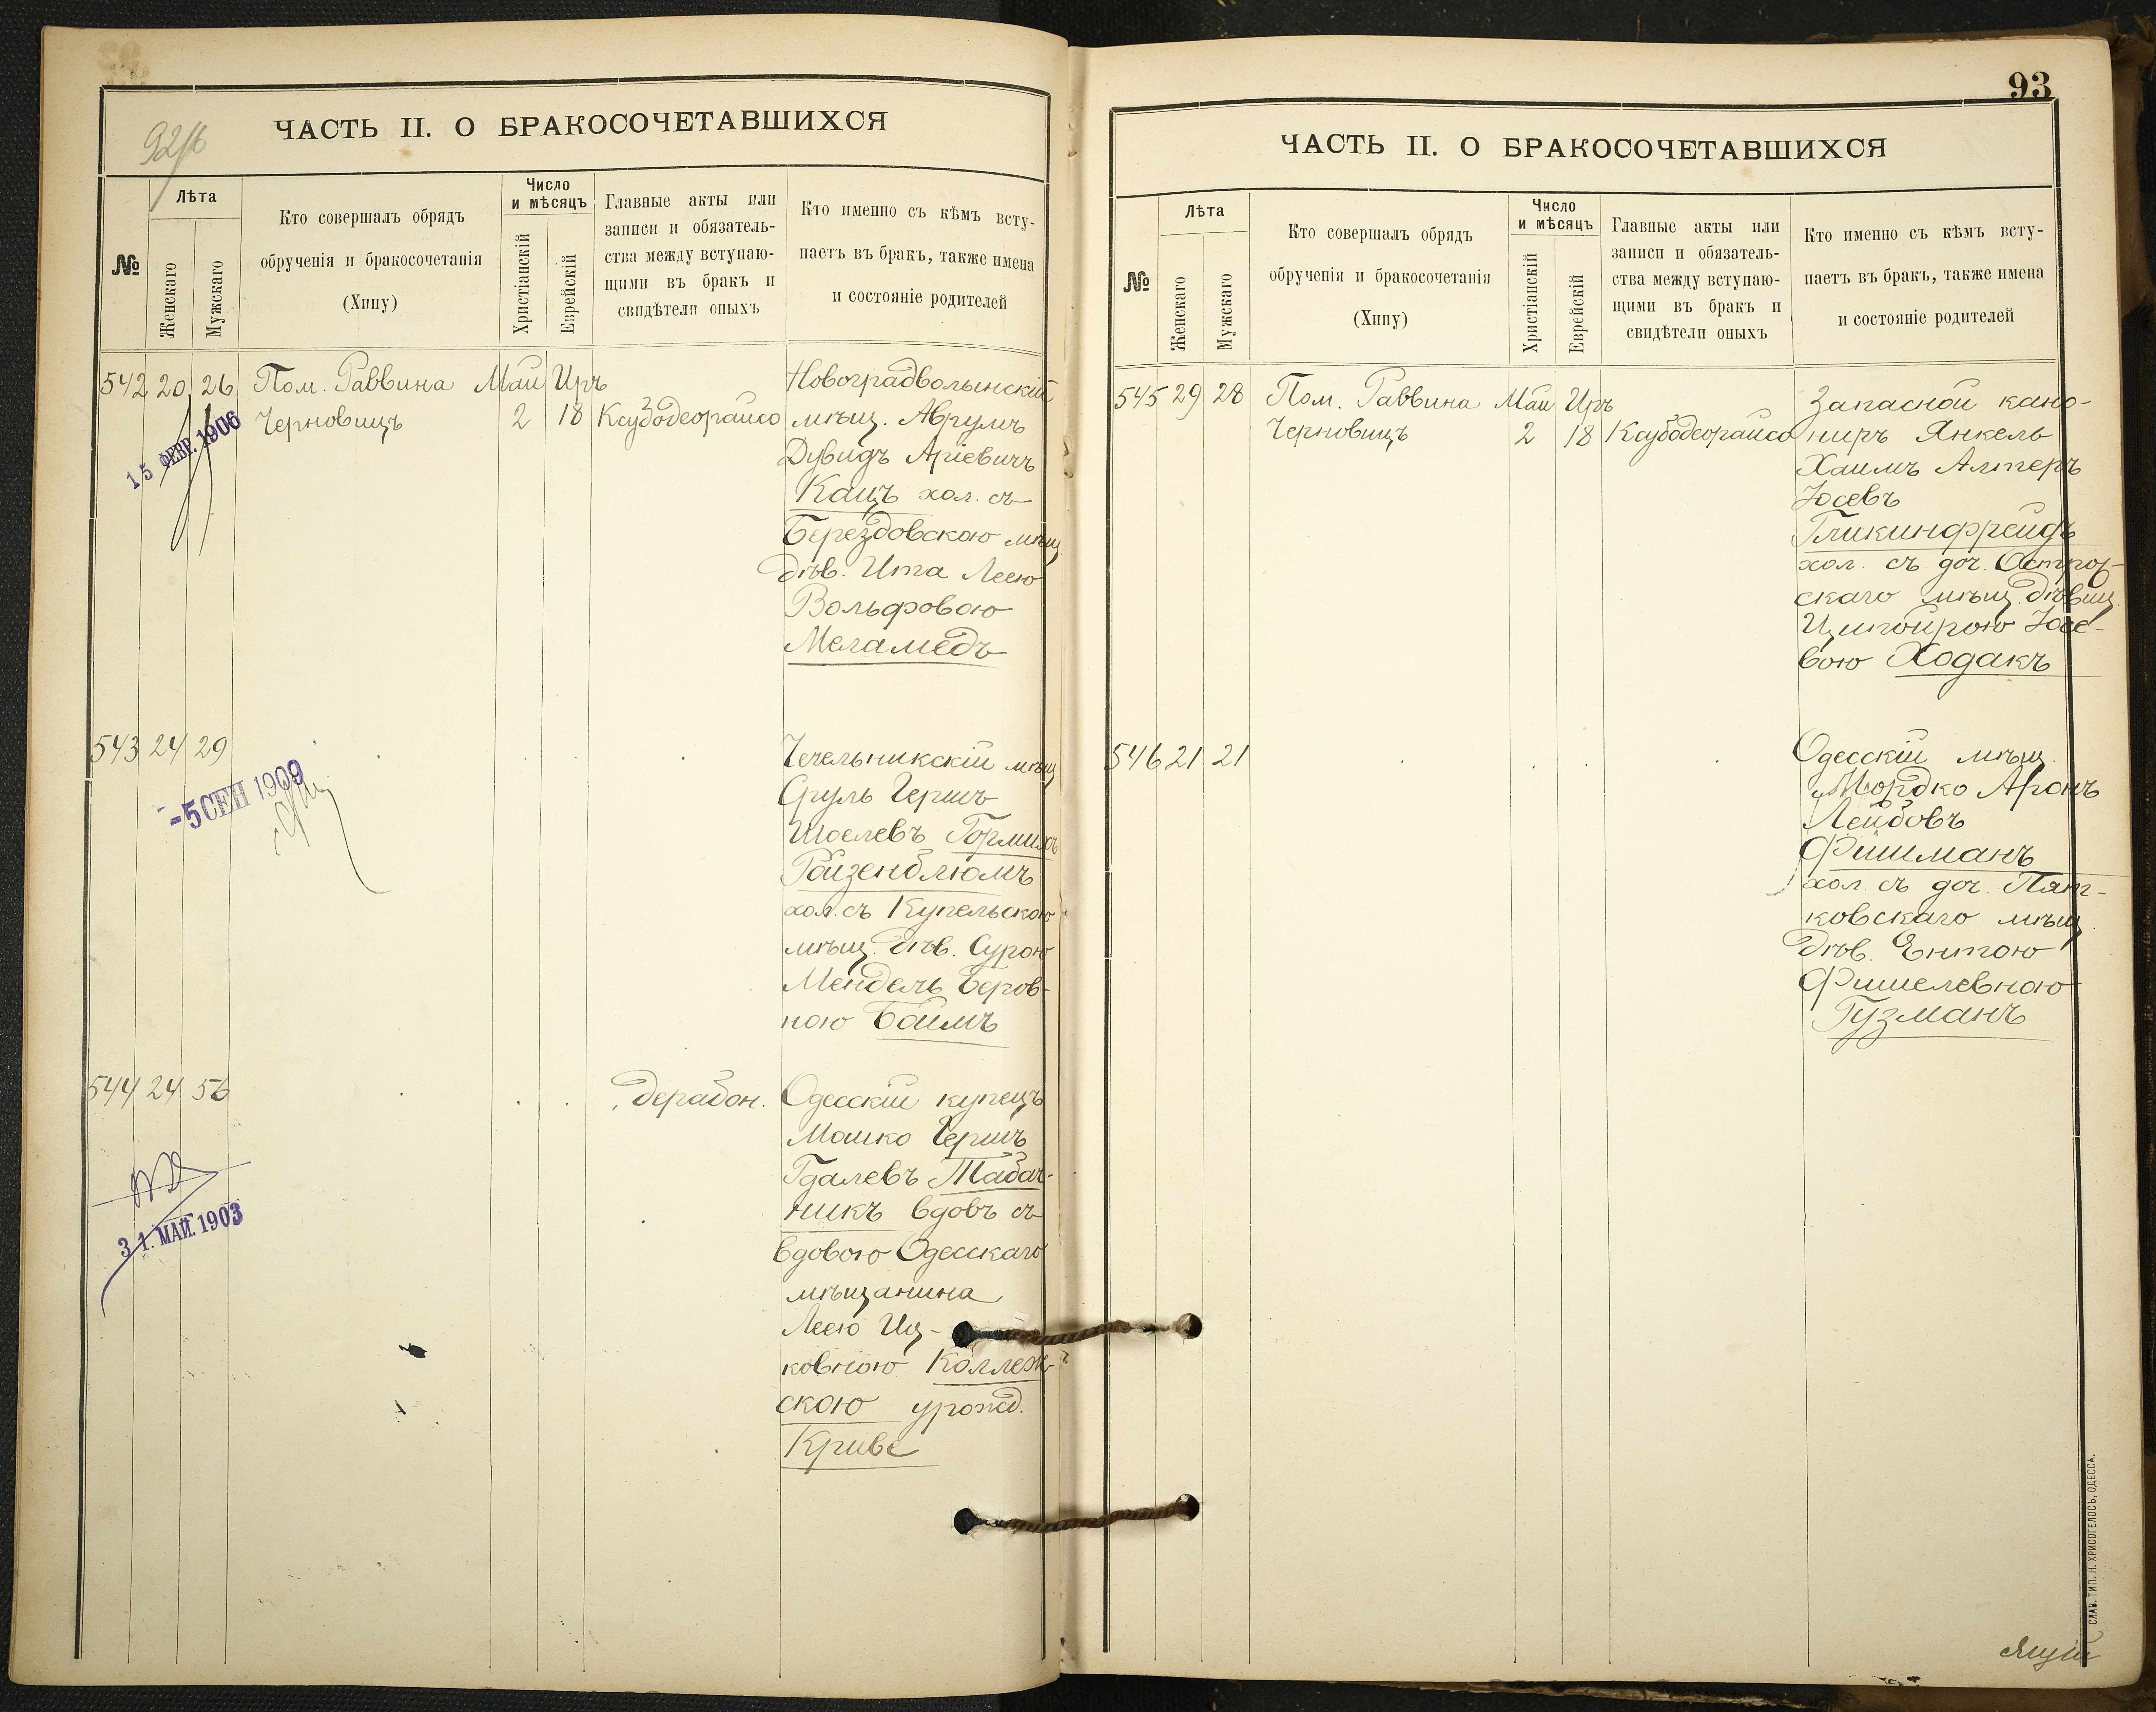 92/б
ЧАСТЬ II. О БРАКОСОЧЕТАВШИХСЯ
№
Лѣта
Женскаго
Мужскаго
Кто совершалъ обрядъ
обрученія и бракосочетанія
(Хипу)
Число
и мѣсяцъ
Христіанскій
Еврейскій
Главные акты или
записи и обязатель-
ства между вступаю-
щими въ бракъ и
свидѣтели оныхъ
Кто именно съ кѣмъ всту-
паетъ въ бракъ, также имена
и состояніе родителей
542 20 26 Пом. Раввина Май Иръ
Черновицъ 2 18
15 ФЕВР. 1906
Новоградволынскій
мѣщ. Аврумъ
Дувидъ Аріевичъ
Кацъ хол. съ
Берездовскою мѣщ
дѣв. Ита Леею
Вольфовою
Меламедъ
543 24 29
-5 СЕН 1909
Чечельникскій мѣщ
Сруль Гершъ
Шоелевъ
Ройзенблюмъ
хол. съ Купельскою
мѣщ. дѣв. Сурою
Мендель Беров-
ною Боимъ
544 24 56
31. МАЙ. 1903
дерабон.
Одесскій купецъ
Мошко Гершъ
Гдалевъ Табач-
никъ вдовъ съ
вдовою Одесскаго
мѣщанина
Леею Иц-
ковною Коллеж-
скою урожд.
Криве
93
ЧАСТЬ II. О БРАКОСОЧЕТАВШИХСЯ
№
Лѣта
Женскаго
Мужскаго
Кто совершалъ обрядъ
обрученія и бракосочетанія
(Хипу)
Число
и мѣсяцъ
Христіанскій
Еврейскій
Главные акты или
записи и обязатель-
ства между вступаю-
щими въ бракъ и
свидѣтели оныхъ
Кто именно съ кѣмъ всту-
паетъ въ бракъ, также имена
и состояніе родителей
545 29 28 Пом. Раввина Май Иръ
Черновицъ 2 18
Запасной кано-
ниръ Янкель
Хаимъ Алтеръ
Іосевъ
Гликинфрейдъ
хол. съ доч. Острог-
скаго мѣщ. дѣвиц.
Ципойрою Іосе-
вою Ходакъ
546 21 21
Одесскій мѣщ.
Мордко Аронъ
Лейбовъ
Фишманъ
хол. съ доч. Пят-
ковскаго мѣщ.
дѣв. Ентою
Фишелевною
Гузманъ
СЛАВ. ТИП. Н. ХРИСОГЕЛОСЪ, ОДЕССА.